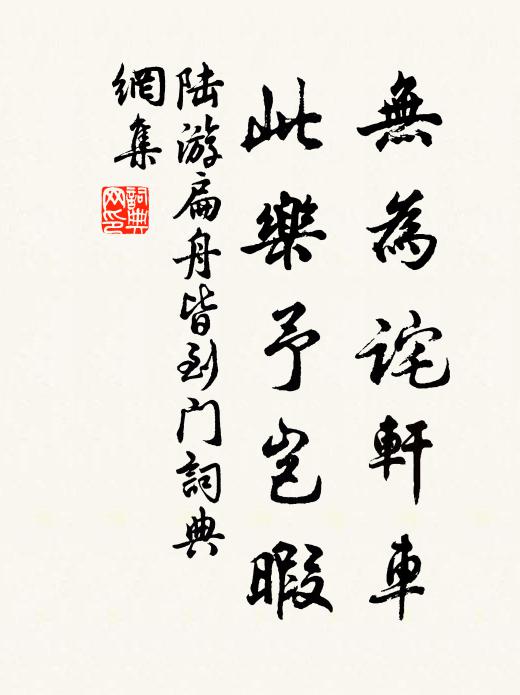 無為詫軒車
此樂予豈暇
陸游扁舟皆到门詞典
網集
詞典
网印